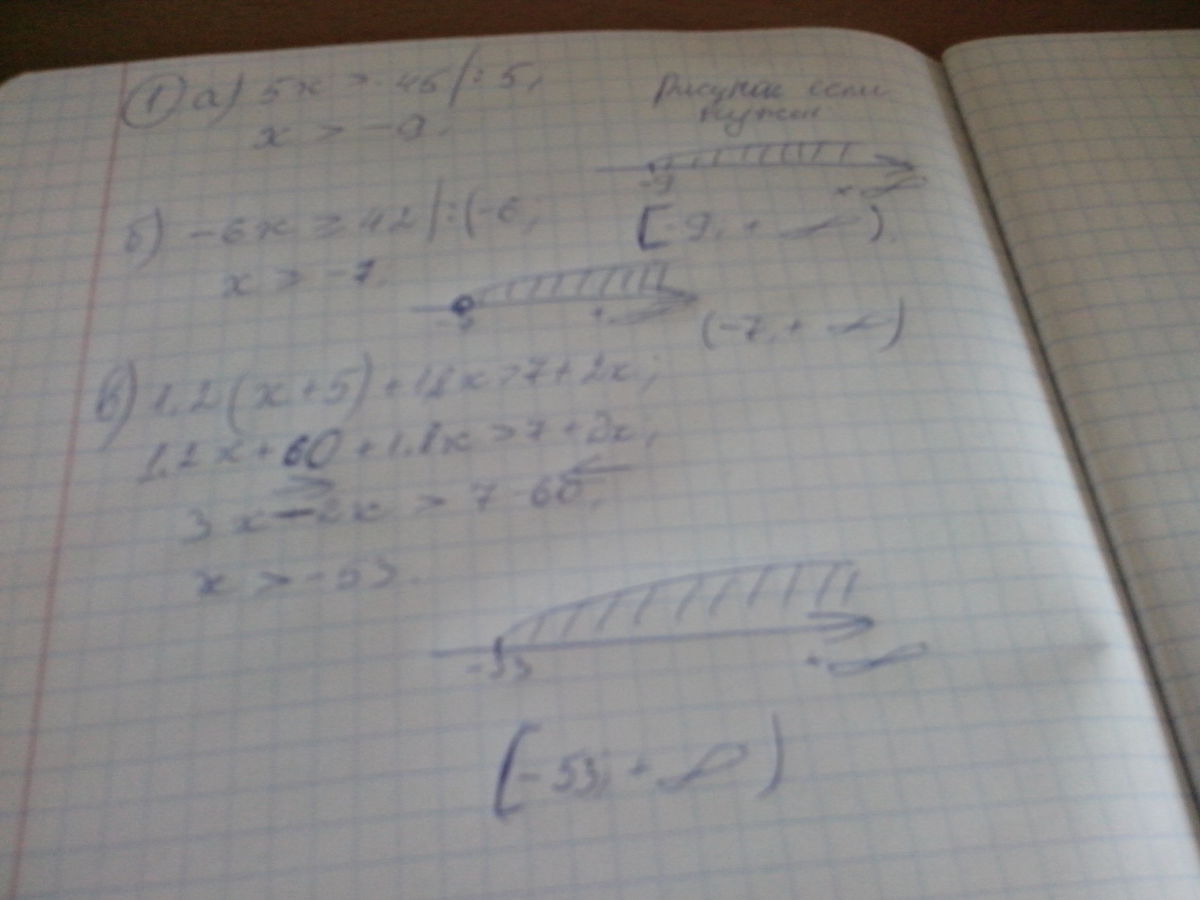 ① а) 5x > -45 | : 5;
x > -9.
Рисунок если
нужен
-9 +∞
[-9; +∞).
б) -6x ≥ 42 | : (-6;
x > -7.
+∞
(-7; +∞)
в) 1.2(x+5) + 1.8x > 7 + 2x;
1.2x + 60 + 1.8x > 7 + 2x;
3x - 2x > 7 - 60;
x > -53.
-53 +∞
[-53; +∞)